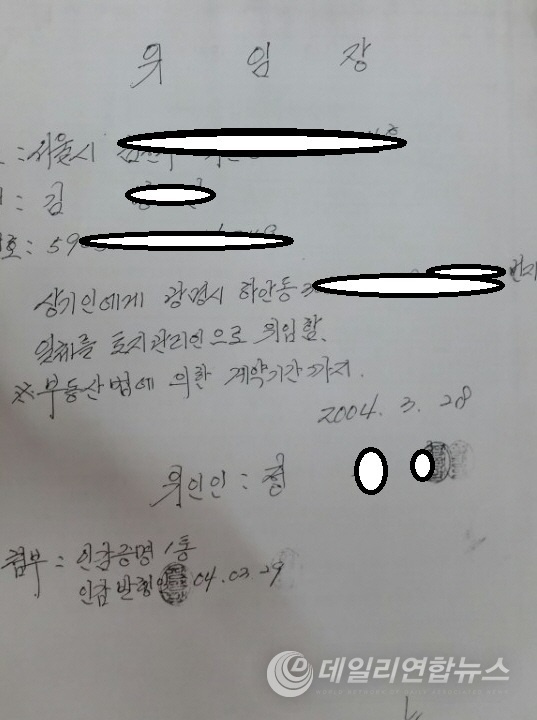 위 임 장
: 서울시
: 김
호 : 59
상기인에게 광명시 하안동
일체를 토지관리인으로 위임함.
※부동산법에 의한 계약기간까지.
2004. 3. 28
위인인 : 정
첨부 : 인감증명 1통
인감발행일 04.03.29
데일리연합뉴스